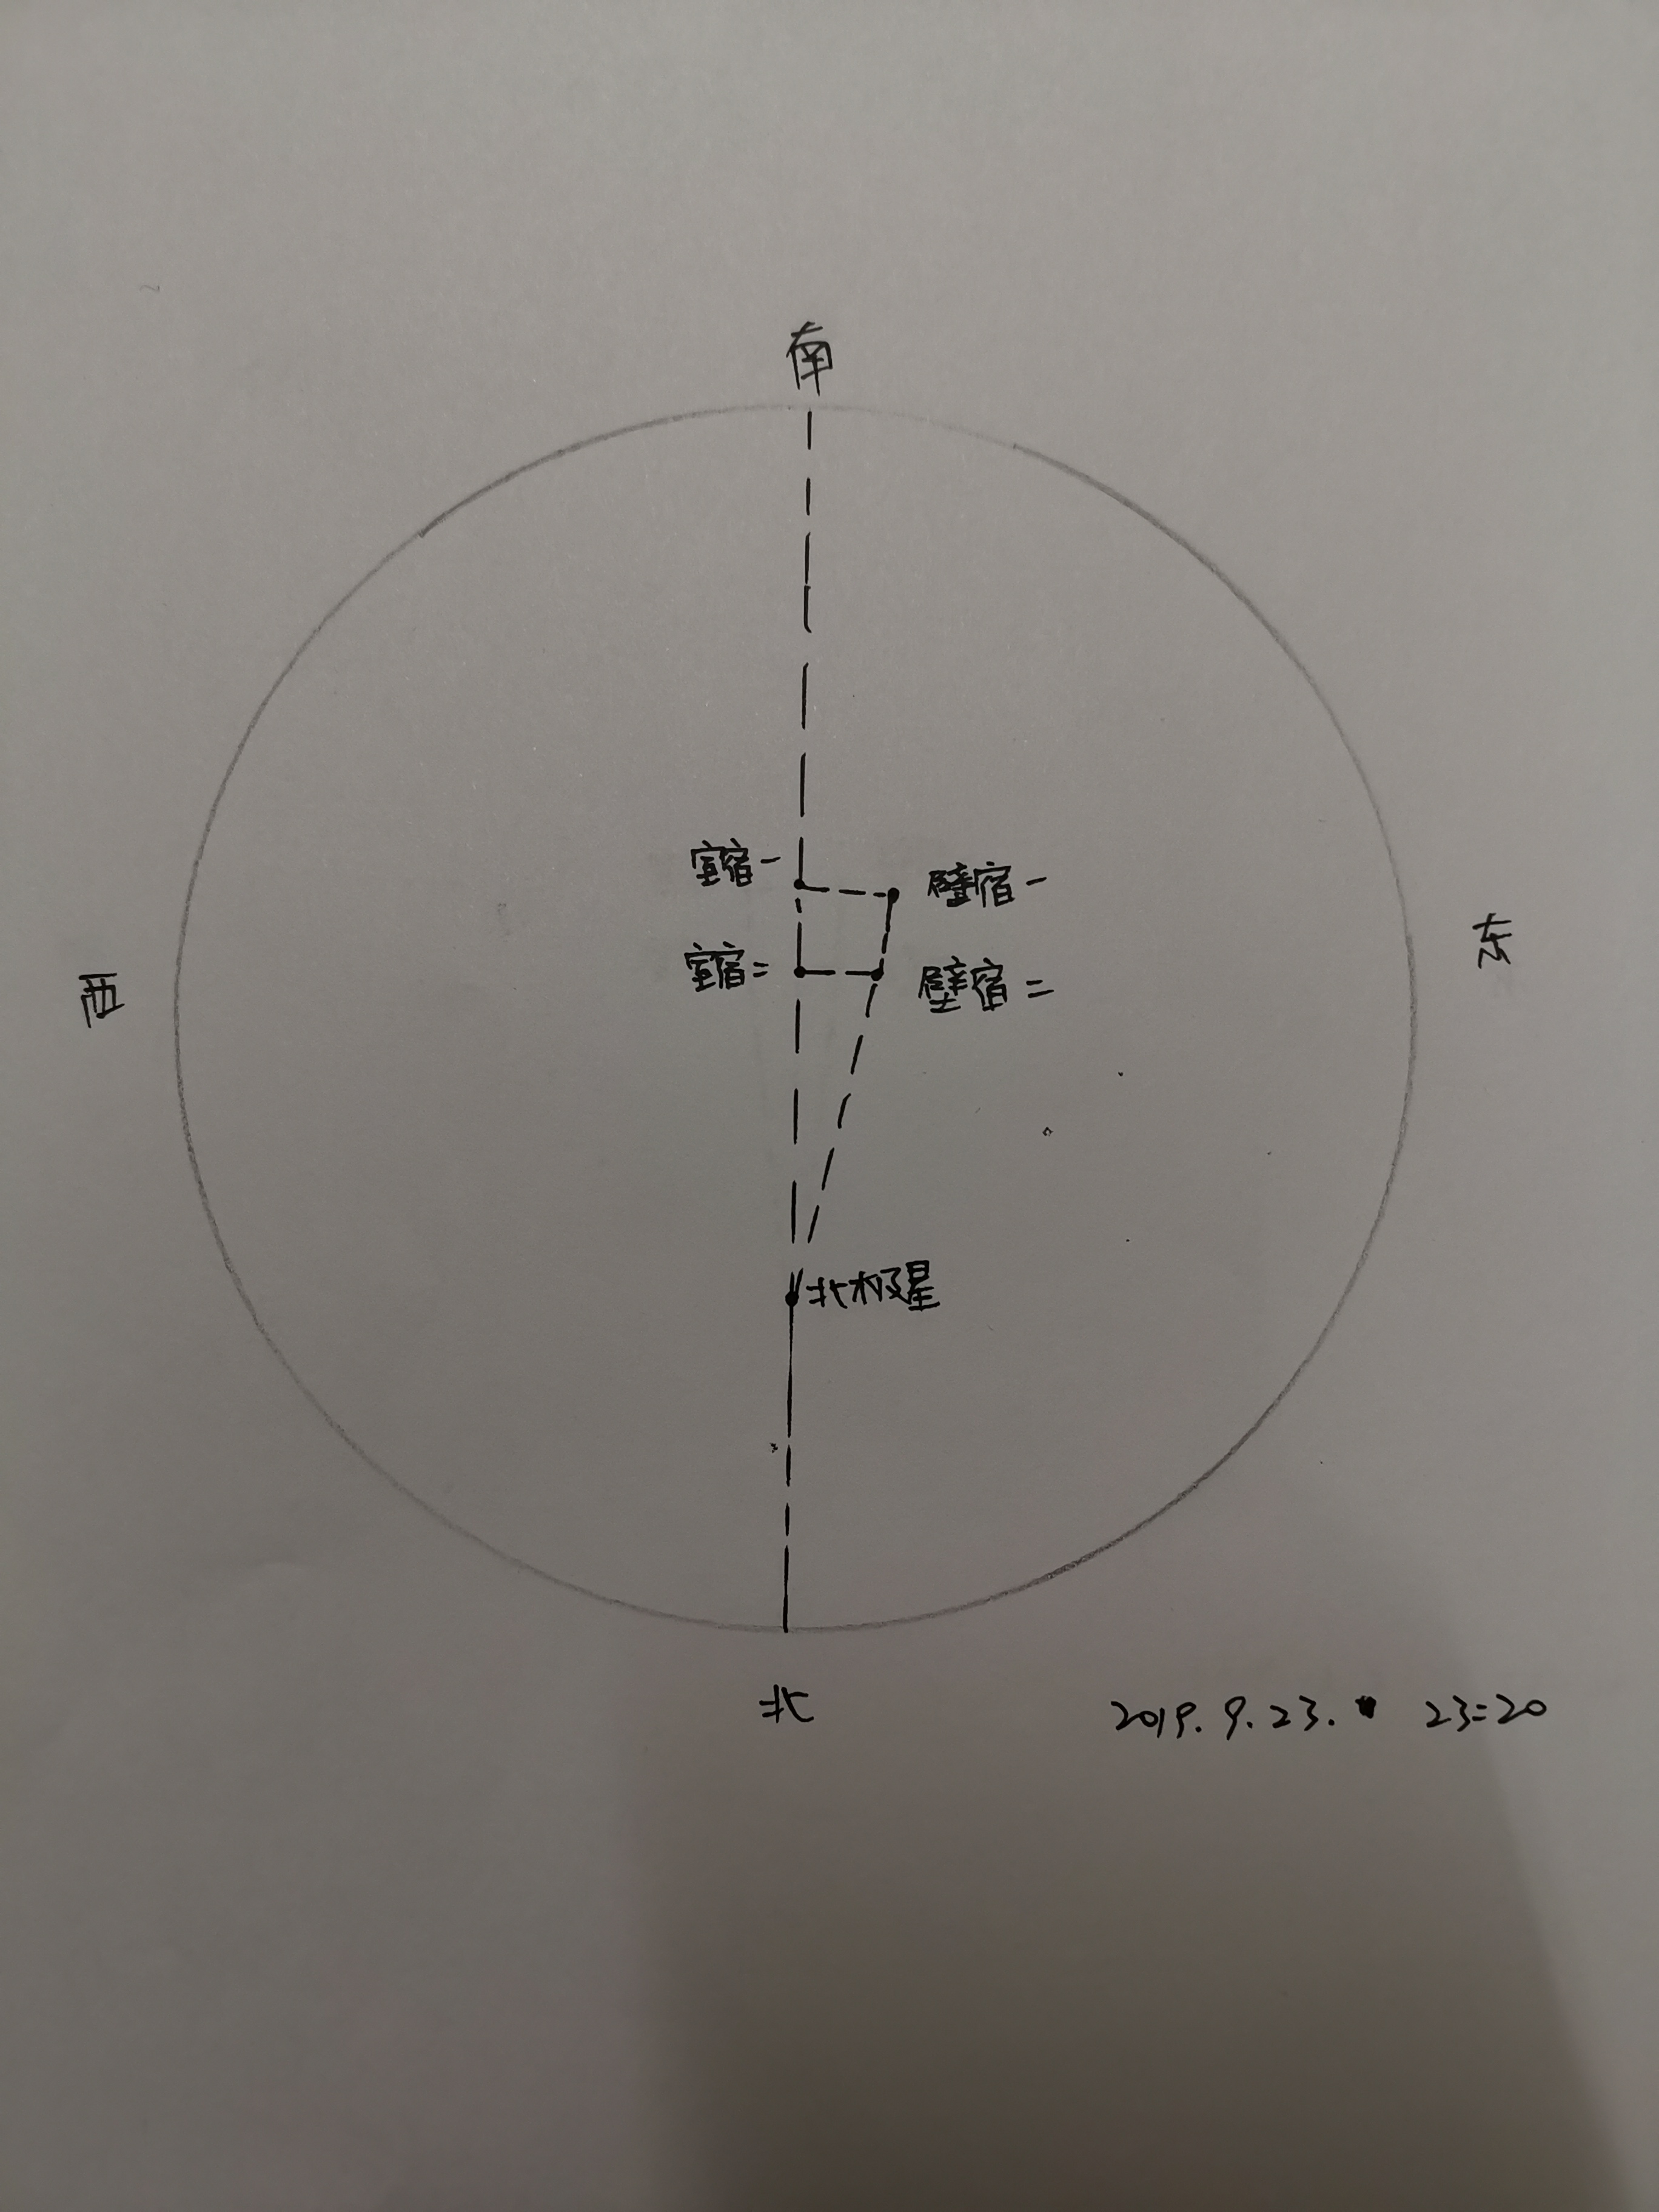 南
室宿一
壁宿一
东
室宿二
壁宿二
西
北极星
北
2019.9.23. 23:20